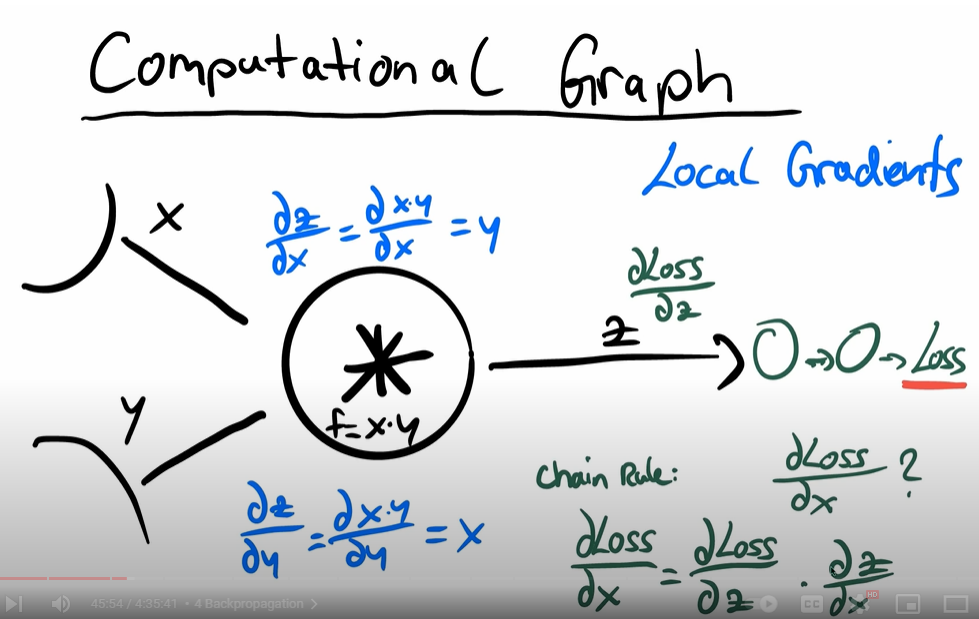 Computational Graph
Local Gradients
x
∂z/∂x = ∂x·y/∂x = y
∂Loss/∂z
z
*
f=x·y
Loss
y
Chain Rule:
∂Loss/∂x ?
∂z/∂y = ∂x·y/∂y = x
∂Loss/∂x = ∂Loss/∂z · ∂z/∂x
45:54 / 4:35:41 • 4 Backpropagation >
CC
HD